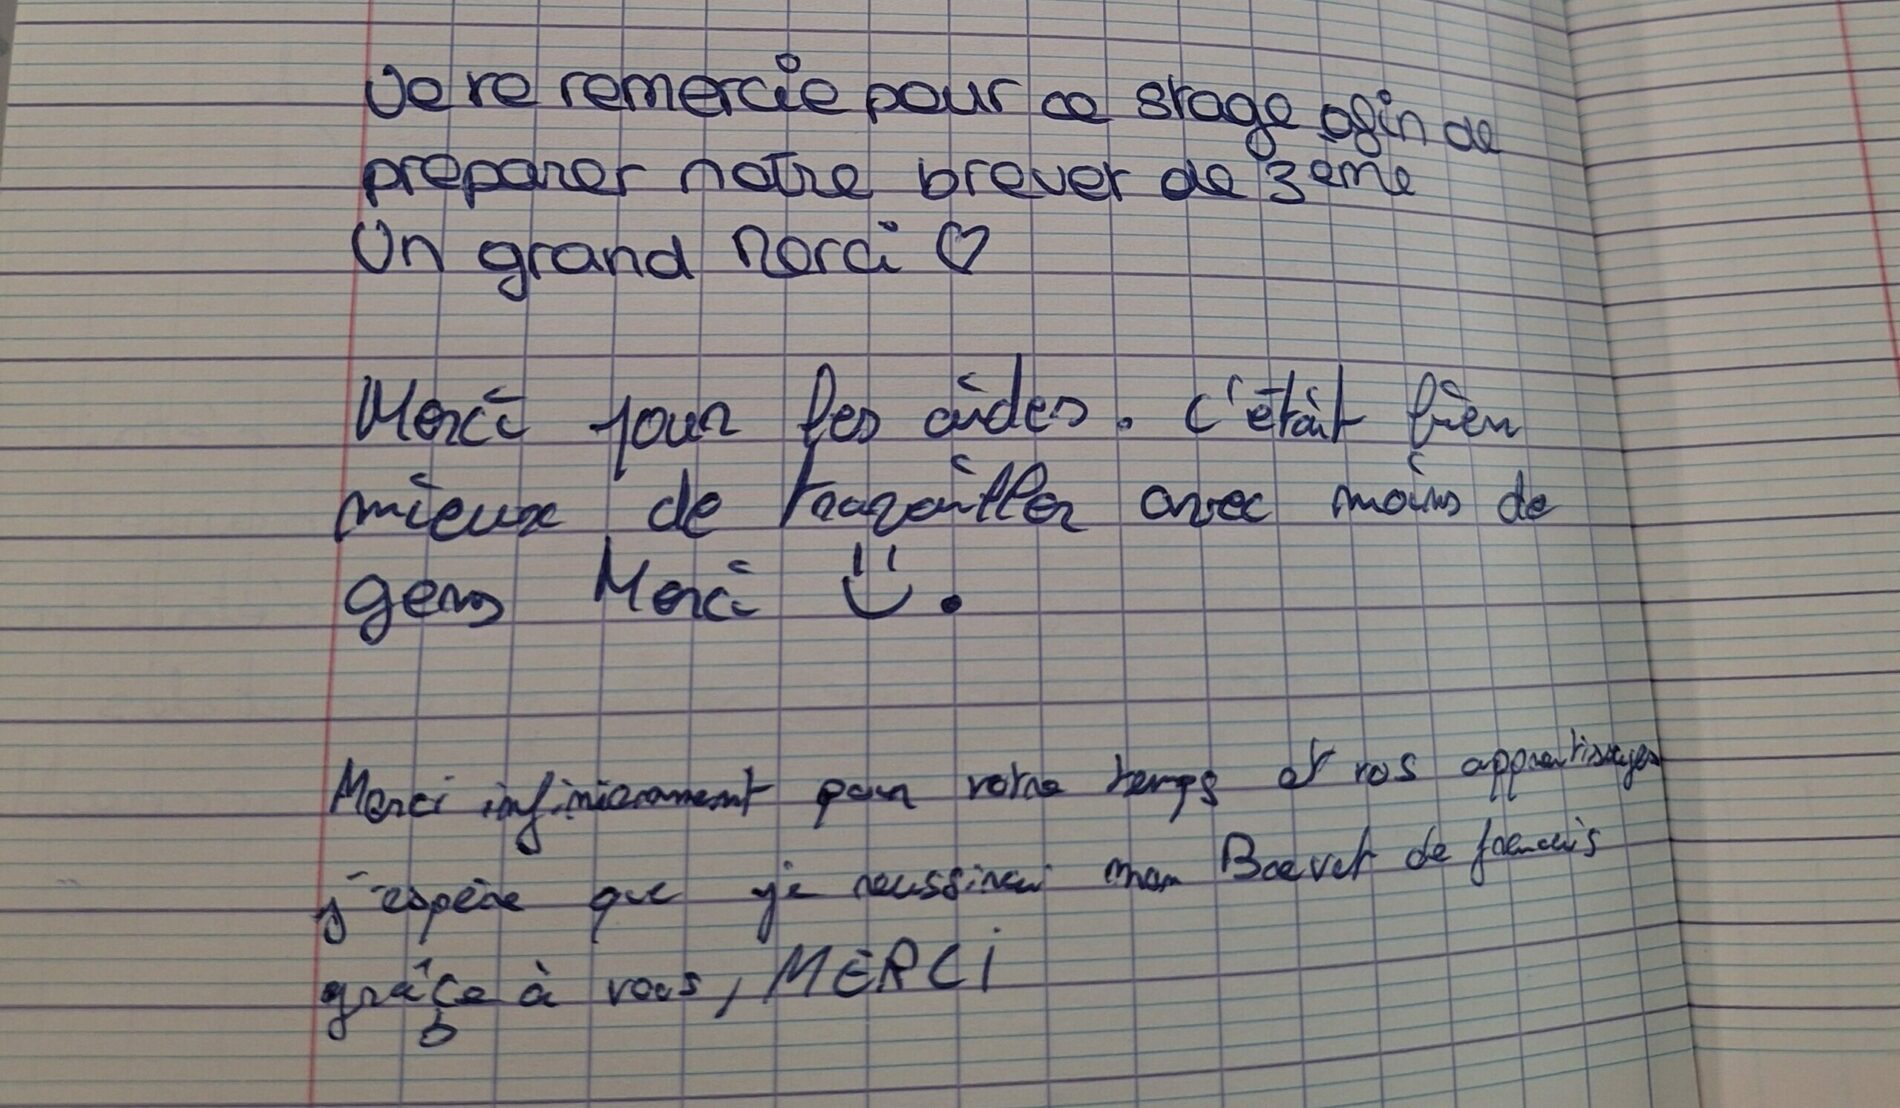 Je te remercie pour ce stage afin de
preparer notre brevet de 3eme
Un grand Merci ♡
Merci pour les aides. c'était bien
mieux de travailler avec moins de
gens Merci
Merci infinierament pour votre temps et vos apprentissages
j'espère que je reussirai mon Brevet de francais
grâçe à vous, MERCi